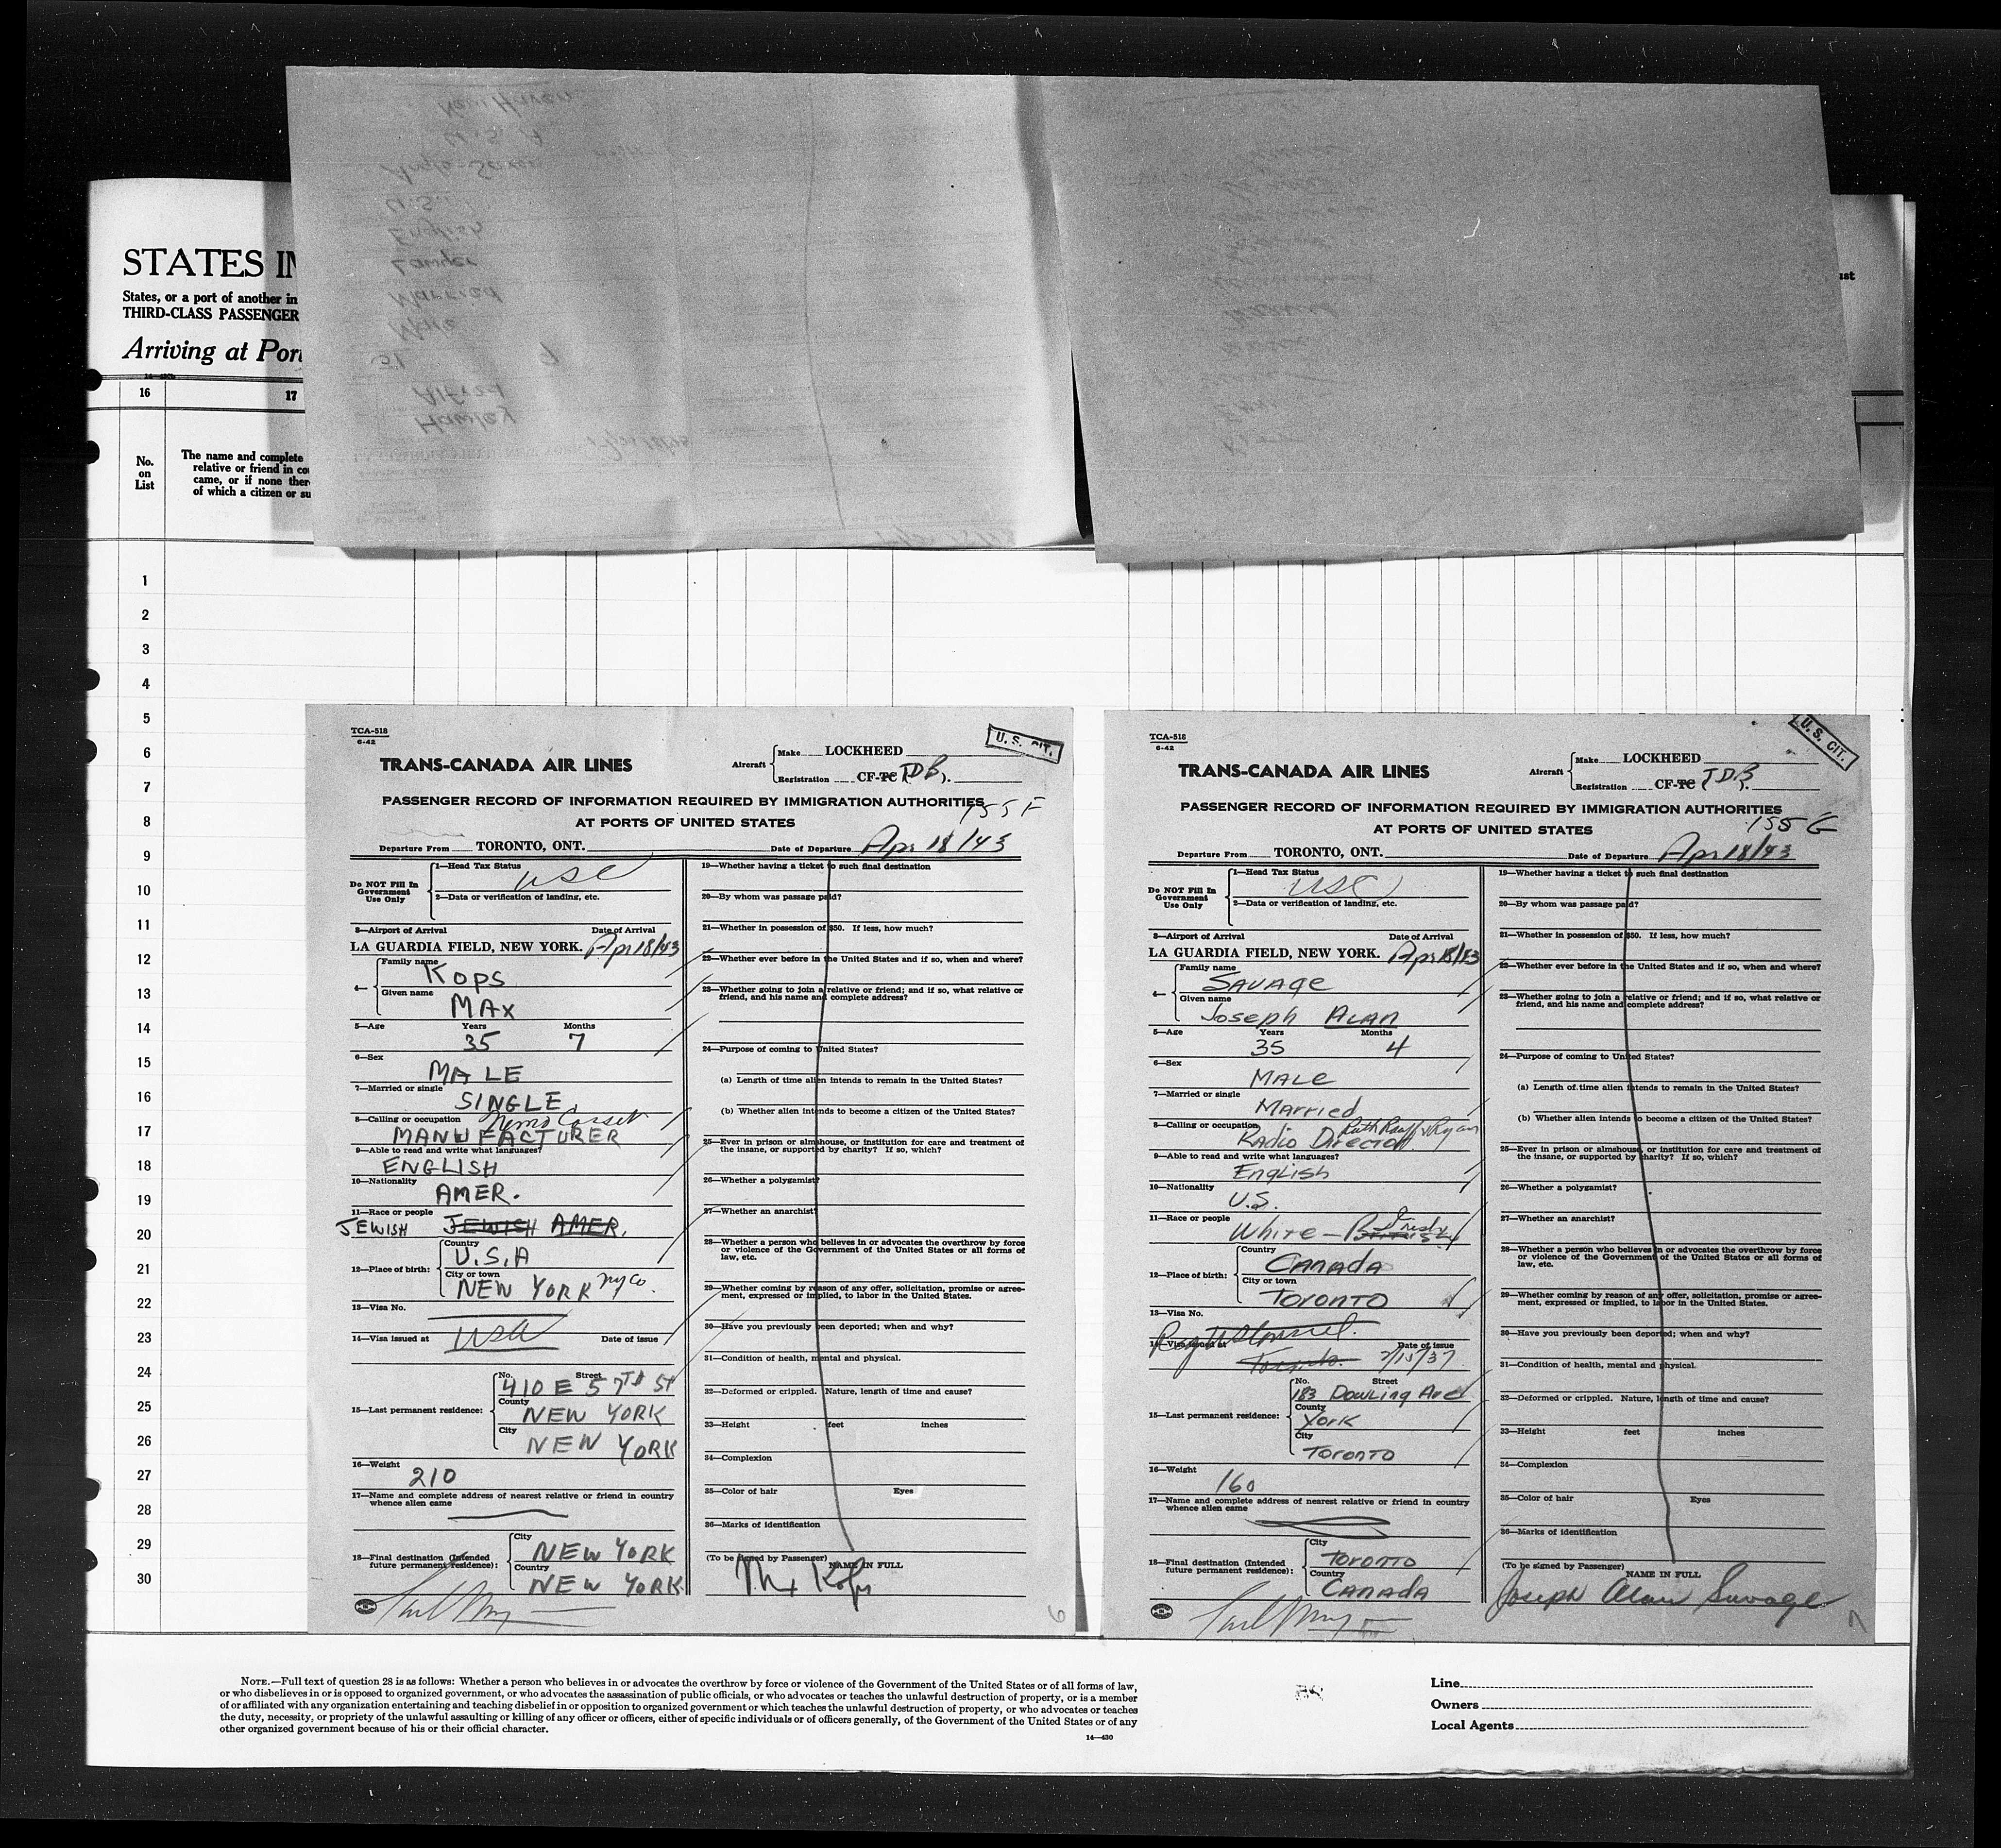 STATES IN
States, or a port of another in
THIRD-CLASS PASSENGER
Arriving at Port
16 17
No. on List
The name and complete
relative or friend in co
came, or if none ther
of which a citizen or su
ust
1
2
3
4
5
6
7
8
9
10
11
12
13
14
15
16
17
18
19
20
21
22
23
24
25
26
27
28
29
30
New Haven
U.S.A
U.S.
English
Lawyer
Married
Male
31
Alfred
Hawley
TCA-518
6-42
U. S. CIT.
TRANS-CANADA AIR LINES
Aircraft
Make LOCKHEED
Registration CF-TC (TDB).
PASSENGER RECORD OF INFORMATION REQUIRED BY IMMIGRATION AUTHORITIES
AT PORTS OF UNITED STATES
155 F
Departure From TORONTO, ONT. Date of Departure Apr 18/43
Do NOT Fill In Government Use Only
1—Head Tax Status
USC
2—Data or verification of landing, etc.
3—Airport of Arrival Date of Arrival
LA GUARDIA FIELD, NEW YORK. Apr 18/43
4—
Family name
KOPS
Given name
MAX
5—Age Years Months
35 7
6—Sex
MALE
7—Married or single
SINGLE
8—Calling or occupation Nemo Corset
MANUFACTURER
9—Able to read and write what languages?
ENGLISH
10—Nationality
AMER.
11—Race or people
JEWISH JEWISH AMER.
12—Place of birth:
Country
U.S.A
City or town
NEW YORK NY Co.
13—Visa No.
14—Visa issued at Date of issue
USA
15—Last permanent residence:
No. Street
410 E 57TH ST
County
NEW YORK
City
NEW YORK
16—Weight
210
17—Name and complete address of nearest relative or friend in country
whence alien came
18—Final destination (Intended
future permanent residence):
City
NEW YORK
Country
NEW YORK
19—Whether having a ticket to such final destination
20—By whom was passage paid?
21—Whether in possession of $50. If less, how much?
22—Whether ever before in the United States and if so, when and where?
23—Whether going to join a relative or friend; and if so, what relative or
friend, and his name and complete address?
24—Purpose of coming to United States?
(a) Length of time alien intends to remain in the United States?
(b) Whether alien intends to become a citizen of the United States?
25—Ever in prison or almshouse, or institution for care and treatment of
the insane, or supported by charity? If so, which?
26—Whether a polygamist?
27—Whether an anarchist?
28—Whether a person who believes in or advocates the overthrow by force
or violence of the Government of the United States or all forms of
law, etc.
29—Whether coming by reason of any offer, solicitation, promise or agree-
ment, expressed or implied, to labor in the United States.
30—Have you previously been deported; when and why?
31—Condition of health, mental and physical.
32—Deformed or crippled. Nature, length of time and cause?
33—Height feet inches
34—Complexion
35—Color of hair Eyes
36—Marks of identification
(To be signed by Passenger) NAME IN FULL
Max Kops
6
TCA-518
6-42
U. S. CIT.
TRANS-CANADA AIR LINES
Aircraft
Make LOCKHEED
Registration CF-TC (TDB).
PASSENGER RECORD OF INFORMATION REQUIRED BY IMMIGRATION AUTHORITIES
AT PORTS OF UNITED STATES
155 G
Departure From TORONTO, ONT. Date of Departure Apr 18/43
Do NOT Fill In Government Use Only
1—Head Tax Status
USC
2—Data or verification of landing, etc.
3—Airport of Arrival Date of Arrival
LA GUARDIA FIELD, NEW YORK. Apr 18/43
4—
Family name
SAVAGE
Given name
Joseph ALAN
5—Age Years Months
35 4
6—Sex
MALE
7—Married or single
Married
8—Calling or occupation Ruthrauff & Ryan
Radio Director.
9—Able to read and write what languages?
English
10—Nationality
U.S.
11—Race or people
White - British Irish
12—Place of birth:
Country
CANADA
City or town
TORONTO
13—Visa No.
14—Visa issued at Date of issue
Toronto 2/15/37
15—Last permanent residence:
No. Street
183 Dowling Ave
County
York
City
Toronto
16—Weight
160
17—Name and complete address of nearest relative or friend in country
whence alien came
18—Final destination (Intended
future permanent residence):
City
TORONTO
Country
CANADA
19—Whether having a ticket to such final destination
20—By whom was passage paid?
21—Whether in possession of $50. If less, how much?
22—Whether ever before in the United States and if so, when and where?
23—Whether going to join a relative or friend; and if so, what relative or
friend, and his name and complete address?
24—Purpose of coming to United States?
(a) Length of time alien intends to remain in the United States?
(b) Whether alien intends to become a citizen of the United States?
25—Ever in prison or almshouse, or institution for care and treatment of
the insane, or supported by charity? If so, which?
26—Whether a polygamist?
27—Whether an anarchist?
28—Whether a person who believes in or advocates the overthrow by force
or violence of the Government of the United States or all forms of
law, etc.
29—Whether coming by reason of any offer, solicitation, promise or agree-
ment, expressed or implied, to labor in the United States.
30—Have you previously been deported; when and why?
31—Condition of health, mental and physical.
32—Deformed or crippled. Nature, length of time and cause?
33—Height feet inches
34—Complexion
35—Color of hair Eyes
36—Marks of identification
(To be signed by Passenger) NAME IN FULL
Joseph Alan Savage
7
NOTE.—Full text of question 28 is as follows: Whether a person who believes in or advocates the overthrow by force or violence of the Government of the United States or of all forms of law,
or who disbelieves in or is opposed to organized government, or who advocates the assassination of public officials, or who advocates or teaches the unlawful destruction of property, or is a member
of or affiliated with any organization entertaining and teaching disbelief in or opposition to organized government or which teaches the unlawful destruction of property, or who advocates or teaches
the duty, necessity, or propriety of the unlawful assaulting or killing of any officer or officers, either of specific individuals or of officers generally, of the Government of the United States or of any
other organized government because of his or their official character.
14—430
Line
Owners
Local Agents